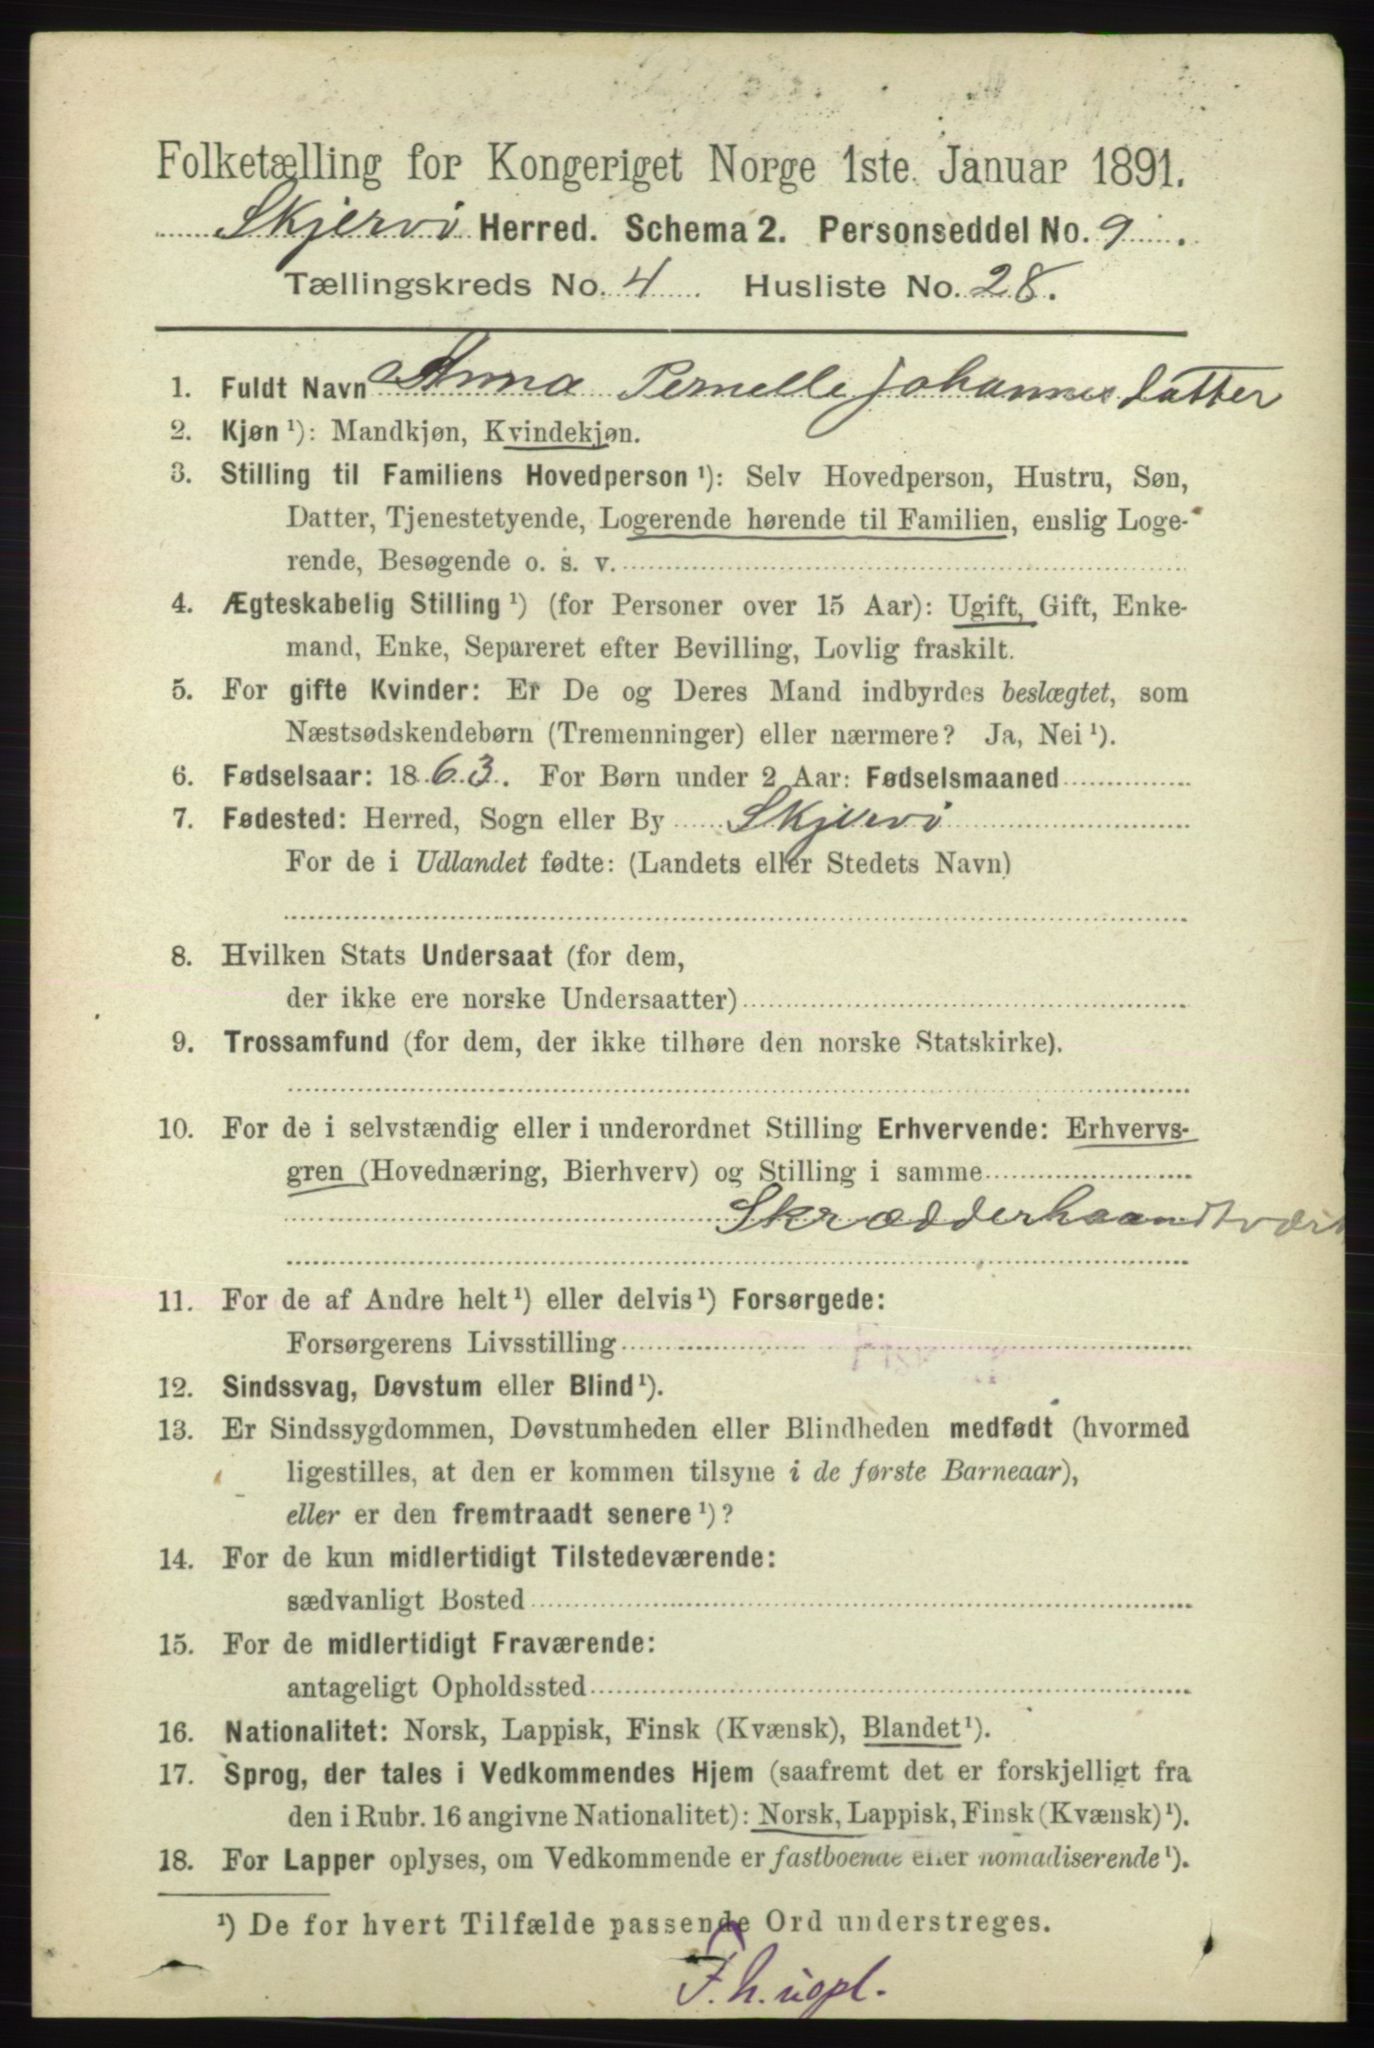 Folketælling for Kongeriget Norge 1ste Januar 1891.
Skjervö Herred. Schema 2. Personseddel No. 9.
Tællingskreds No. 4 Husliste No. 28.
1. Fuldt Navn Anna Pernelle Johannesdatter
2. Kjøn ¹): Mandkjøn, Kvindekjøn.
3. Stilling til Familiens Hovedperson ¹): Selv Hovedperson, Hustru, Søn,
Datter, Tjenestetyende, Logerende hørende til Familien, enslig Loge-
rende, Besøgende o. s. v.
4. Ægteskabelig Stilling ¹) (for Personer over 15 Aar): Ugift, Gift, Enke-
mand, Enke, Separeret efter Bevilling, Lovlig fraskilt.
5. For gifte Kvinder: Er De og Deres Mand indbyrdes beslægtet, som
Næstsødskendebørn (Tremenninger) eller nærmere? Ja, Nei ¹).
6. Fødselsaar: 1863. For Børn under 2 Aar: Fødselsmaaned
7. Fødested: Herred, Sogn eller By Skjervö
For de i Udlandet fødte: (Landets eller Stedets Navn)
8. Hvilken Stats Undersaat (for dem,
der ikke ere norske Undersaatter)
9. Trossamfund (for dem, der ikke tilhøre den norske Statskirke).
10. For de i selvstændig eller i underordnet Stilling Erhvervende: Erhvervs-
gren (Hovednæring, Bierhverv) og Stilling i samme
Skrædderhaandtværk
11. For de af Andre helt ¹) eller delvis ¹) Forsørgede:
Forsørgerens Livsstilling
12. Sindssvag, Døvstum eller Blind ¹).
13. Er Sindssygdommen, Døvstumheden eller Blindheden medfødt (hvormed
ligestilles, at den er kommen tilsyne i de første Barneaar),
eller er den fremtraadt senere ¹)?
14. For de kun midlertidigt Tilstedeværende:
sædvanligt Bosted
15. For de midlertidigt Fraværende:
antageligt Opholdssted
16. Nationalitet: Norsk, Lappisk, Finsk (Kvænsk), Blandet ¹).
17. Sprog, der tales i Vedkommendes Hjem (saafremt det er forskjelligt fra
den i Rubr. 16 angivne Nationalitet): Norsk, Lappisk, Finsk (Kvænsk) ¹).
18. For Lapper oplyses, om Vedkommende er fastboende eller nomadiserende ¹).
¹) De for hvert Tilfælde passende Ord understreges.